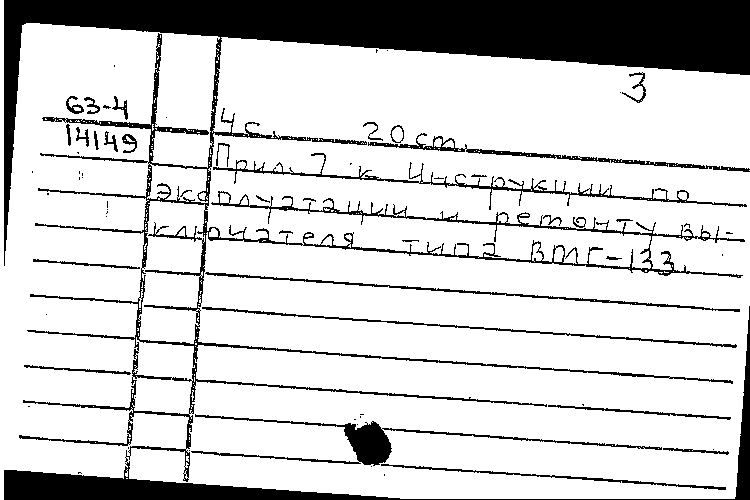 3
63-4
14149
4с. 20 см.
Прил. 7 к Инструкции по
эксплуатации и ремонту вы-
ключателя типа ВМГ-133.